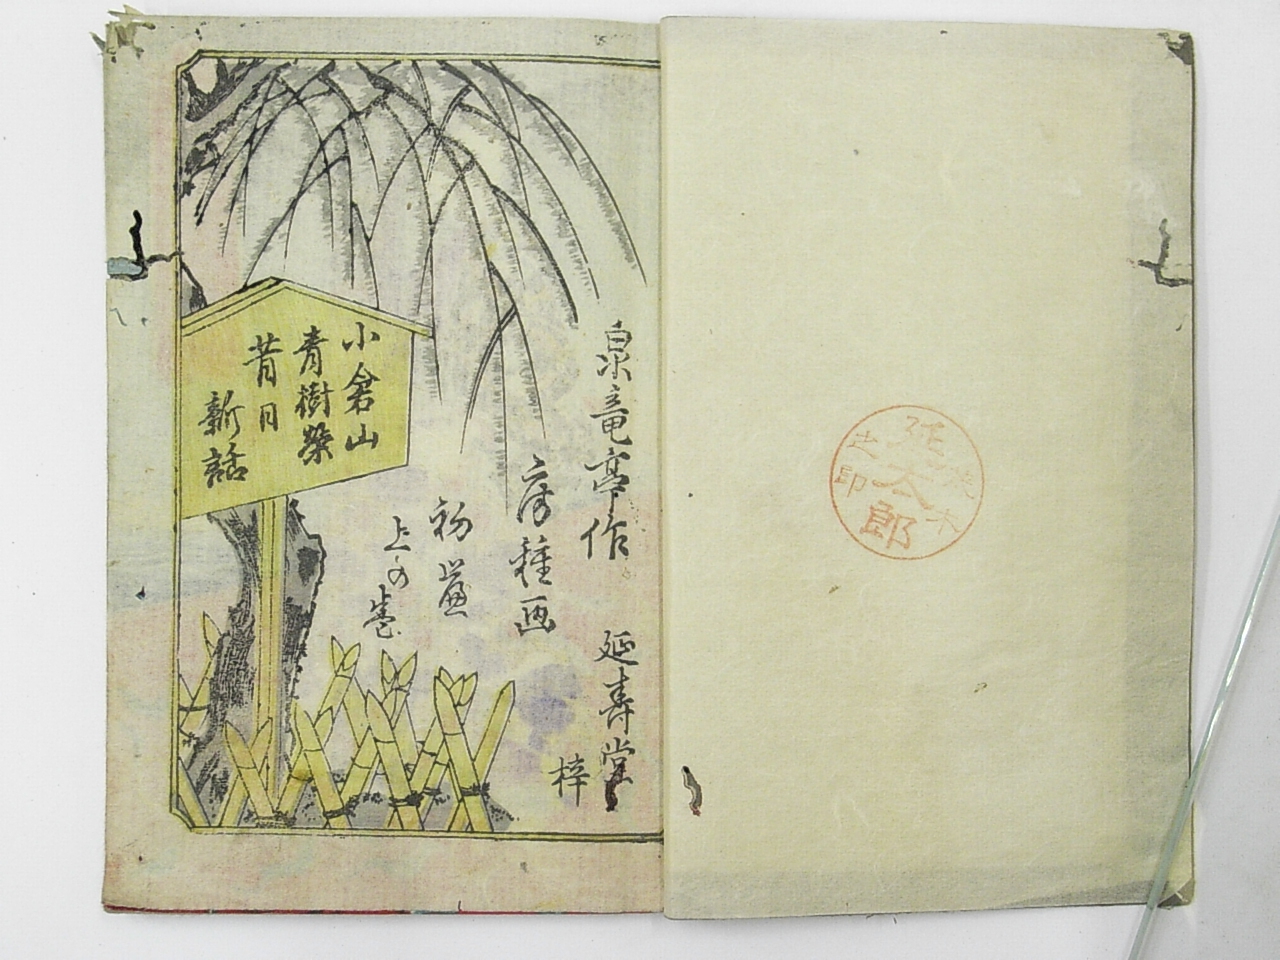 泉竜亭作
延寿堂
梓
房種画
初篇
上の巻
小倉山
青樹榮
昔日
新話
太郎
之印
木